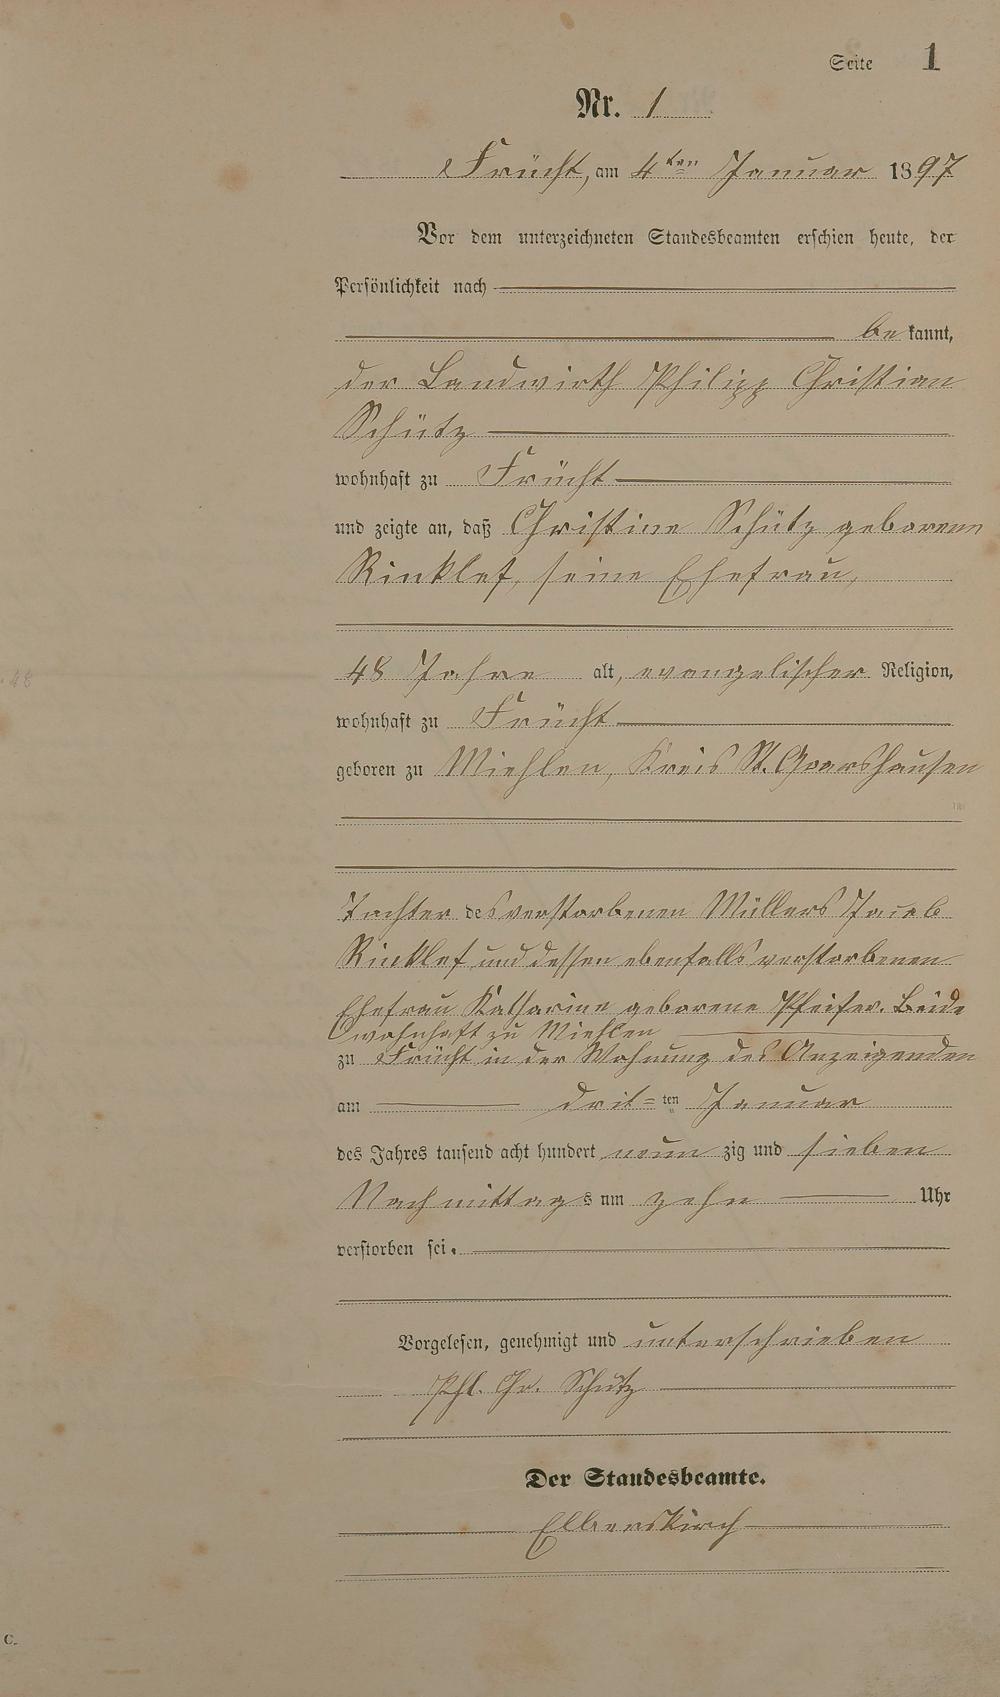 Seite 1
Nr. 1
Frücht, am 4ten Januar 1897
Vor dem unterzeichneten Standesbeamten erschien heute, der
Persönlichkeit nach
be kannt,
der Landwirth Philipp Christian
Schütz
wohnhaft zu Frücht
und zeigte an, daß Christine Schütz geborene
Rinklef, seine Ehefrau,
48 Jahre alt, evangelischer Religion,
wohnhaft zu Frücht
geboren zu Miehlen, Kreis St. Goarshausen
Tochter des verstorbenen Müllers Jacob
Rinklef und dessen ebenfalls verstorbenen
Ehefrau Katharine geborene Pfeifer. Beide
wohnhaft zu Miehlen
zu Frücht in der Wohnung des Anzeigenden
am drit=ten Januar
des Jahres tausend acht hundert neun zig und sieben
Nachmittags um zehn Uhr
verstorben sei.
Vorgelesen, genehmigt und unterschrieben
Phl. Chr. Schütz
Der Standesbeamte.
Elberskirch
C.